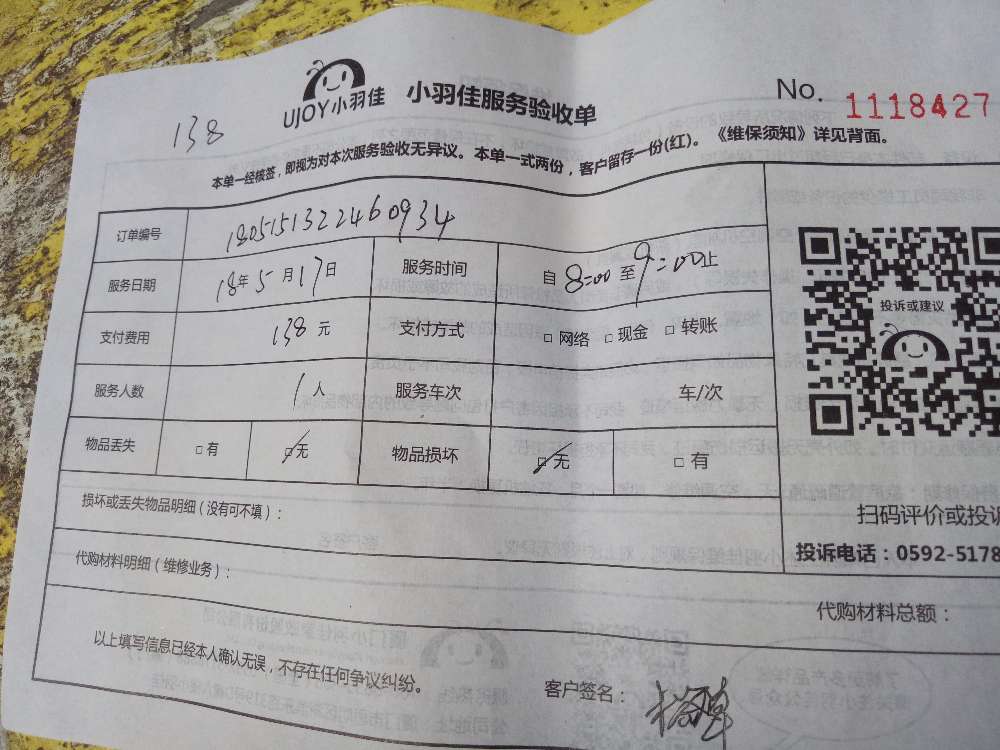 138
UJOY小羽佳 小羽佳服务验收单 No. 1118427
本单一经核签，即视为对本次服务验收无异议。本单一式两份，客户留存一份(红)。《维保须知》详见背面。
订单编号 1805151322460934
服务日期 18年5月17日 服务时间 自8:00至9:00止
支付费用 138元 支付方式 □网络 □现金 □转账
服务人数 1人 服务车次 车/次
物品丢失 □有 □无 物品损坏 □无 □有
损坏或丢失物品明细（没有可不填）：
代购材料明细（维修业务）：
代购材料总额：
以上填写信息已经本人确认无误，不存在任何争议纠纷。
客户签名：
投诉或建议
扫码评价或投诉
投诉电话：0592-5178